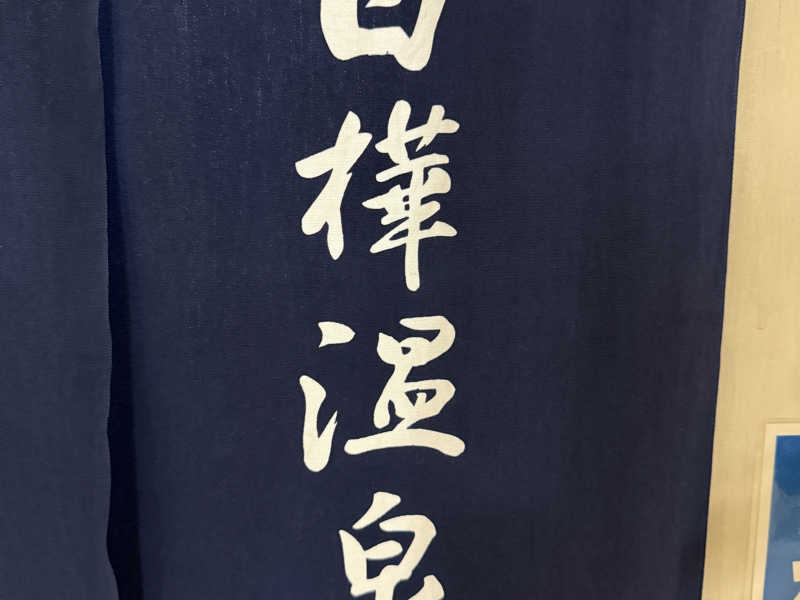 白樺温泉